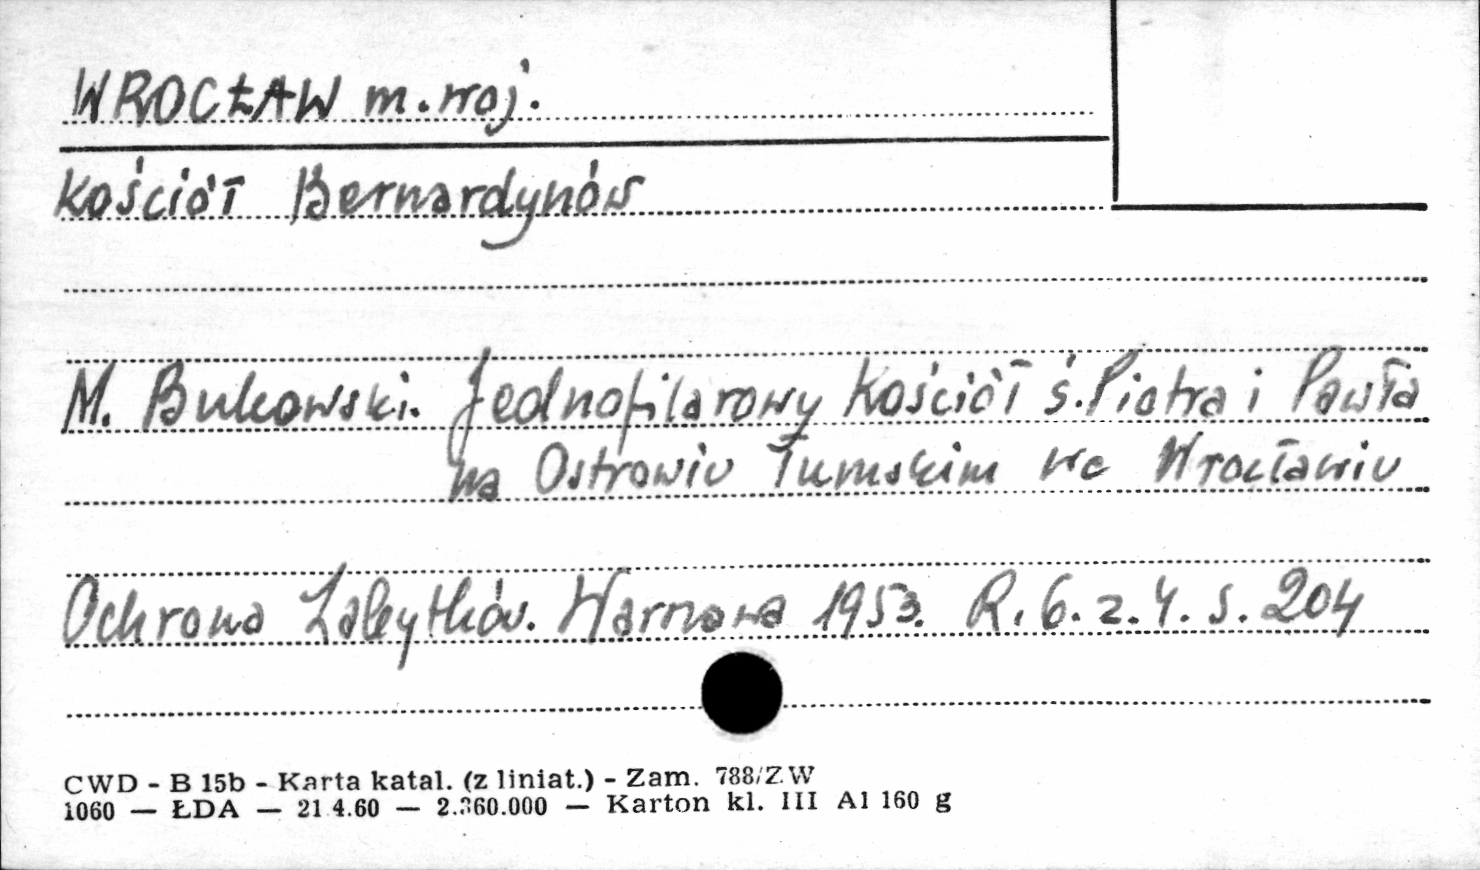 WROCŁAW m.woj.
Kościół Bernardynów
M. Bukowski. Jednofilarowy Kościół ś. Piotra i Pawła
na Ostrowiu Tumskim we Wrocławiu
Ochrona Zabytków. Warszawa 1953. R. 6. z. 4. s. 204
CWD - B 15b - Karta katal. (z liniat.) - Zam. 788/ZW
1060 — ŁDA — 21 4.60 — 2.360.000 — Karton kl. III A1 160 g